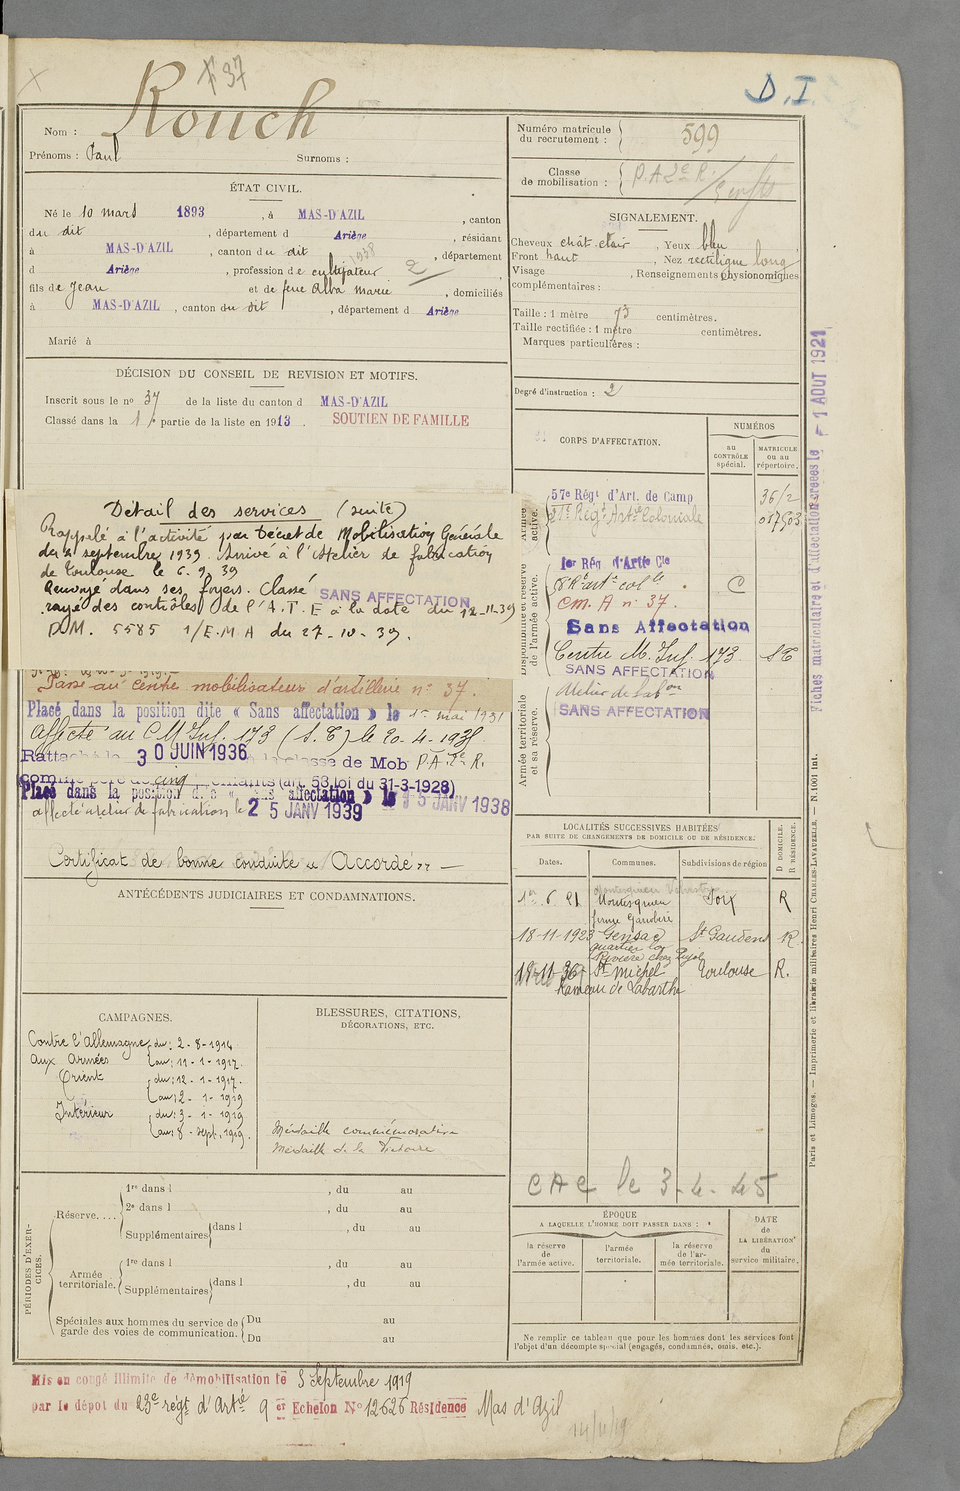 F 37
D. I.
Nom : Rouch
Prénoms : Paul Surnoms :
Numéro matricule du recrutement : 599
Classe de mobilisation : P.A 2e R.
ÉTAT CIVIL.
Né le 10 mars 1893, à MAS-D'AZIL, canton
du dit, département d Ariège, résidant
à MAS-D'AZIL, canton du dit, département
d Ariège, profession de cultivateur
1938
2
fils de Jean et de feue Alba Marie, domiciliés
à MAS-D'AZIL, canton du dit, département d Ariège
Marié à
SIGNALEMENT.
Cheveux chât. clair, Yeux bleu
Front haut, Nez rectiligne long
Visage, Renseignements physionomiques
complémentaires :
Taille : 1 mètre 73 centimètres.
Taille rectifiée : 1 mètre centimètres.
Marques particulières :
Degré d'instruction : 2
DÉCISION DU CONSEIL DE REVISION ET MOTIFS.
Inscrit sous le no 37 de la liste du canton d MAS-D'AZIL
Classé dans la 1re partie de la liste en 1913. SOUTIEN DE FAMILLE
Détail des services (suite)
Rappelé à l'activité par Décret de Mobilisation Générale
du 2 septembre 1939. Arrivé à l'Atelier de fabrication
de Toulouse le 6. 9. 39
Renvoyé dans ses foyers. Classé SANS AFFECTATION
rayé des contrôles de l'A.T.E à la date du 12-11-39
D.M. 5585 1/E.M A du 27-10-39.
Passé au centre mobilisateur d'artillerie no 37.
Placé dans la position dite « Sans affectation » le 1er mai 1931
affecté au C M Inf. 173 (S. E) le 20-4-193
Rattaché le 30 JUIN 1936 à la classe de Mob P.A. 2e R.
comme père de cinq enfants (art. 58 loi du 31-3-1928)
Placé dans la position dite « Sans affectation » le 15 JANV 1938
affecté atelier de fabrication le 25 JANV 1939
Certificat de bonne conduite « Accordé »
ANTÉCÉDENTS JUDICIAIRES ET CONDAMNATIONS.
CAMPAGNES.
Contre l'Allemagne
aux Armées du : 2-8-1914
au : 11-1-1917.
Orient du : 12-1-1917.
au : 2-1-1919
Intérieur du : 3-1-1919
au : 8-sept. 1919.
BLESSURES, CITATIONS,
DÉCORATIONS, ETC.
Médaille commémorative
Médaille de la Victoire
PÉRIODES D'EXERCICES.
Réserve....
1re dans l , du au
2e dans l , du au
Supplémentaires dans l , du au
Armée territoriale.
1re dans l , du au
Supplémentaires dans l , du au
Spéciales aux hommes du service de garde des voies de communication.
Du au
Du au
CORPS D'AFFECTATION.
NUMÉROS
au CONTRÔLE spécial.
MATRICULE ou au répertoire.
Armée active.
57e Régt d'Art. de Camp 36/2
Régt Artie Coloniale 017503
Disponibilité et réserve de l'armée active.
1er Rég d'Artie Cle
Rt art colle C
C.M. A no 37.
Sans Affectation
Centre M. Inf. 173 S E
SANS AFFECTATION
Armée territoriale et sa réserve.
Atelier de fabon
SANS AFFECTATION
Fiches matriculaire et d'affectation créées le 1 AOUT 1921
LOCALITÉS SUCCESSIVES HABITÉES
PAR SUITE DE CHANGEMENTS DE DOMICILE OU DE RÉSIDENCE.
Dates. Communes. Subdivisions de région D DOMICILE. R RÉSIDENCE.
1er. 6. 21 Montesquieu Foix R
18-11-1923 Gensac St Gaudens R.
18-11-36 St Michel Toulouse R.
Hameau de Labarthe
CAC le 3-4-45
ÉPOQUE
A LAQUELLE L'HOMME DOIT PASSER DANS :
la réserve de l'armée active.
l'armée territoriale.
la réserve de l'armée territoriale.
DATE de LA LIBÉRATION du service militaire.
Ne remplir ce tableau que pour les hommes dont les services font
l'objet d'un décompte spécial (engagés, condamnés, omis, etc.).
Paris et Limoges. — Imprimerie et librairie militaires Henri CHARLES-LAVAUZELLE. — N. 1001 int.
Mis en congé illimité de démobilisation le 3 Septembre 1919
par le dépôt du 23e régt d'Artie 9 er Echelon No 12626 Résidence Mas d'Azil